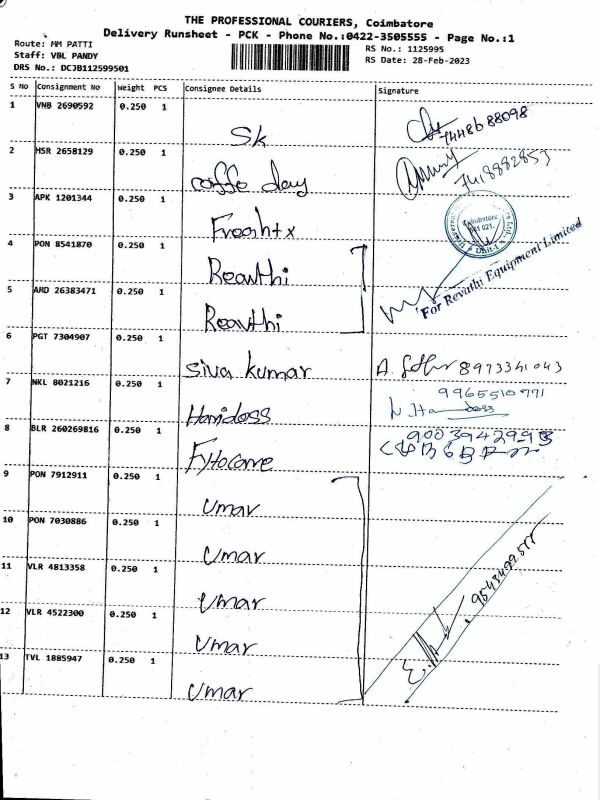 THE PROFESSIONAL COURIERS, Coimbatore
Delivery Runsheet - PCK - Phone No.:0422-3505555 - Page No.:1
Route: MM PATTI
Staff: VBL PANDY
DRS No.: DCJB112599501
RS No.: 1125995
RS Date: 28-Feb-2023
S No Consignment No Weight PCS Consignee Details Signature
1 VNB 2690592 0.250 1 Sk 7448688098
2 HSR 2658129 0.250 1 coffe day
3 APK 1201344 0.250 1 Freshtx
Coimbatore
641 021.
Unit-1
4 PON 8541870 0.250 1 Reavthi
For Revathi Equipment Limited
5 AMD 26383471 0.250 1 Reavthi
6 PGT 7304907 0.250 1 Siva kumar 8973341043
7 NKL 8021216 0.250 1 Haridoss 9965510771
8 BLR 260269816 0.250 1 Fytocare 9003942993
9 PON 7912911 0.250 1 Umar
10 PON 7030886 0.250 1 Umar
11 VLR 4813358 0.250 1 Umar
12 VLR 4522300 0.250 1 Umar
13 TVL 1885947 0.250 1 Umar